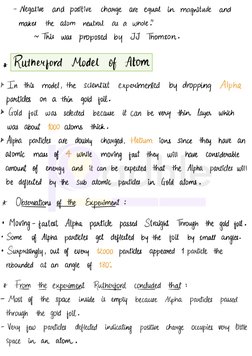 - Negative and positive charge are equal in magnitude and
make the atom neutral as a whole."
~ This was proposed by JJ Thomson.
* Rutherford Model of Atom
> In this model, the scientist experimented by dropping Alpha
particles on a thin gold foil.
> Gold foil was selected because it can be very thin layer which
was about 1000 atoms thick.
> Alpha particles are doubly charged, Helium ions since they have an
atomic mass of 4 while moving fast they will have considerable
amount of energy and it can be expected that the Alpha particles will
be deflected by the sub atomic particles in Gold atoms.
* Observations of the Experiment :
• Moving-fastest Alpha particle passed Straight Through the gold foil.
• Some of Alpha particles get deflected by the foil by small angles.
• Surprisingly, out of every 12000 particles appeared 1 particle
rebounded at an angle of 180°.
* From the experiment Rutherford concluded that :
- Most of the space inside is empty because Alpha particles passed
through the gold foil.
- Very few particles deflected indicating positive charge occupies very little
space in an atom.